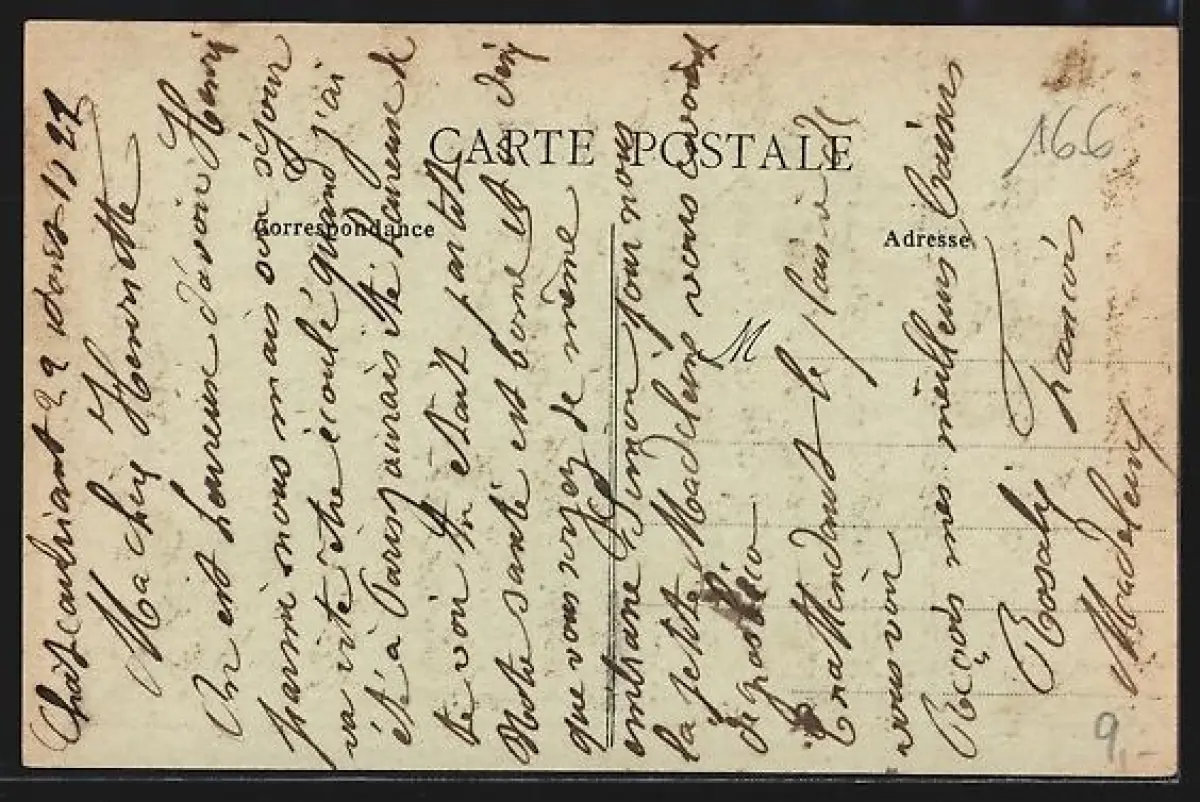 CARTE POSTALE
Correspondance
Adresse
M
166
9,-
Chateaubriant 22 1922
Ma chère Henriette
On est heureuse d'avoir Henri
parmi nous mais son séjour
va vite être écoulé quand j'ai
été à Paris j'aurais été heureuse de
te voir tu était partit
Notre santé est bonne et désir
que vous soyez de même
embrasse Simon pour nous
la petite Madeleine vous envoie
di gros
En attendant le plaisir de
vous voir
Reçois mes meilleurs baisers
Rosaly Francis
Madeleine